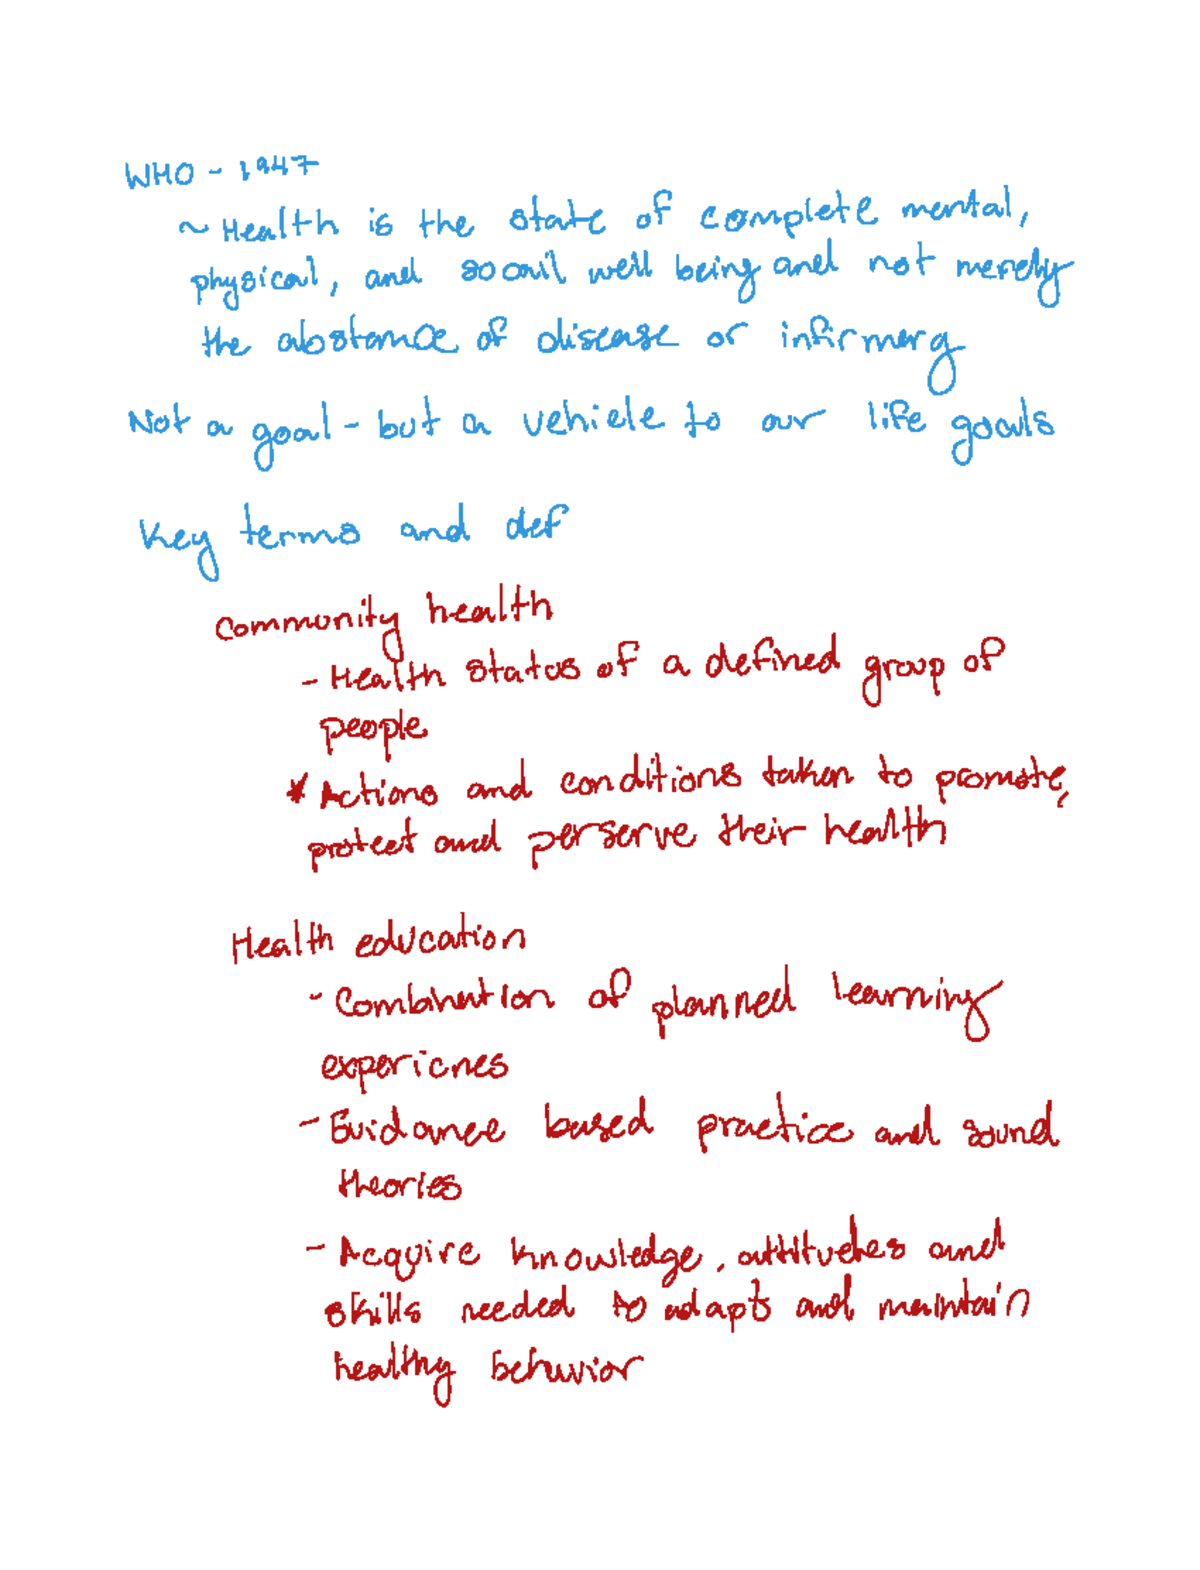 WHO - 1947
~ Health is the state of complete mental,
physical, and socail well being and not merely
the abstance of disease or infirmery
Not a goal - but a vehicle to our life goals
Key terms and def
Community health
- Health status of a defined group of
people
* Actions and conditions taken to promote,
protect and perserve their health
Health education
- Combination of planned learning
expericnes
- Evidance based practice and sound
theories
- Acquire knowledge, attitudes and
skills needed to adapts and maintain
healthy behavior